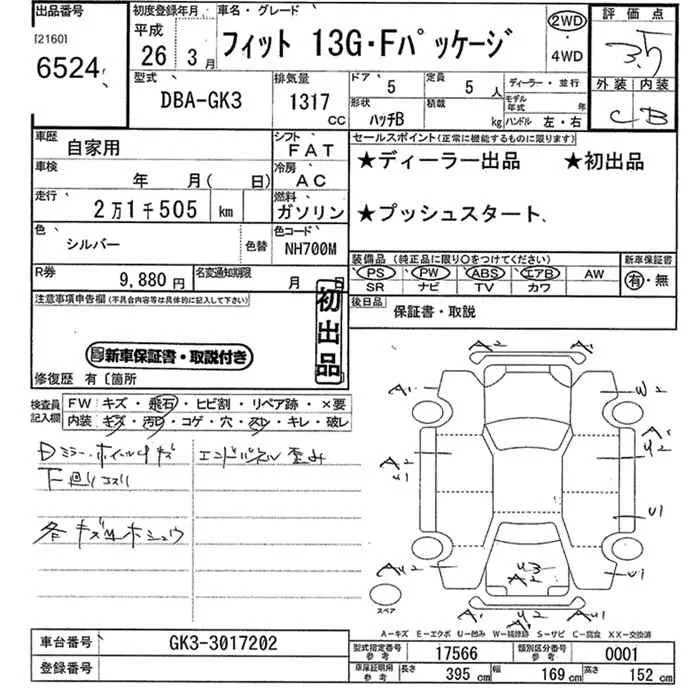 出品番号 初度登録年月 車名・グレード 評価点
[2160] 平成 2WD
6524 26 3月 フィット 13G・Fパッケージ ・ 3.5
4WD
型式 排気量 ドア 5 定員 5人 ディーラー・並行 外装 内装
DBA-GK3 1317cc 形状 ハッチB 積載 kg モデル年式 年 ハンドル 左・右 C B
車歴 自家用 シフト FAT セールスポイント(正常に機能するものに限ります)
車検 年 月( 日) 冷房 AC ★ディーラー出品 ★初出品
走行 2万1千505 km 燃料 ガソリン ★プッシュスタート
色 シルバー 色替 色コード NH700M
装備品(純正品に限り○をつけてください) 新車保証書
R券 9,880円 名変通知期限 月 日 PS PW ABS エアB AW 有・無
SR ナビ TV カワ
注意事項申告欄(不具合内容等は具体的に記入して下さい) 初出品 後日品 保証書・取説
新車保証書・取説付き
修復歴 有〔箇所
検査員記入欄 FW キズ・飛石・ヒビ割・リペア跡・×要
内装 キズ・汚れ・コゲ・穴・スレ・キレ・破レ
Dミラー・ホイールキズ エンドパネル歪み
下廻りコスリ
各キズ凹ホシュウ
A2 A1
A1 W2
A2 U1 A1 U2
U1
AU2 U3 A2 U1
A2 AU1
スペア
A−キズ E−エクボ U−凹み W−補修跡 S−サビ C−腐食 XX−交換済
車台番号 GK3-3017202 型式指定番号 参考 17566 類別区分番号 参考 0001
登録番号 車庫証明用 参考 長さ 395 cm 幅 169 cm 高さ 152 cm